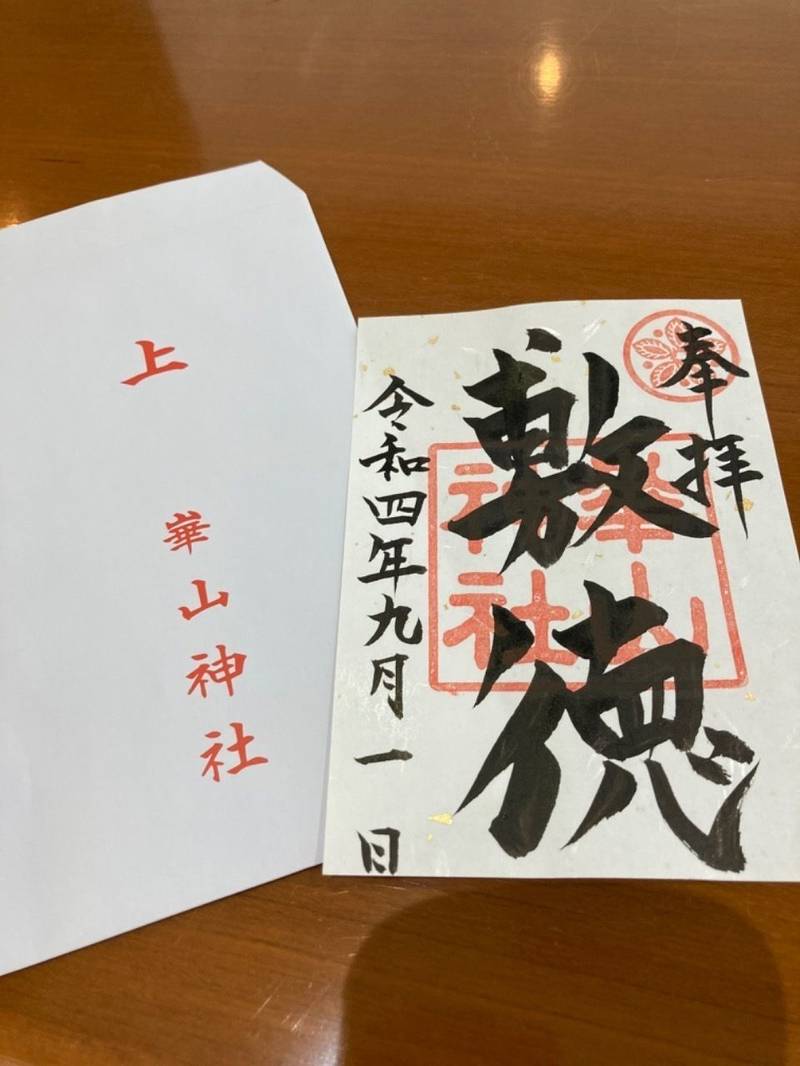 上
崋山神社
奉拝
敷徳
崋山
神社
令和四年九月一日